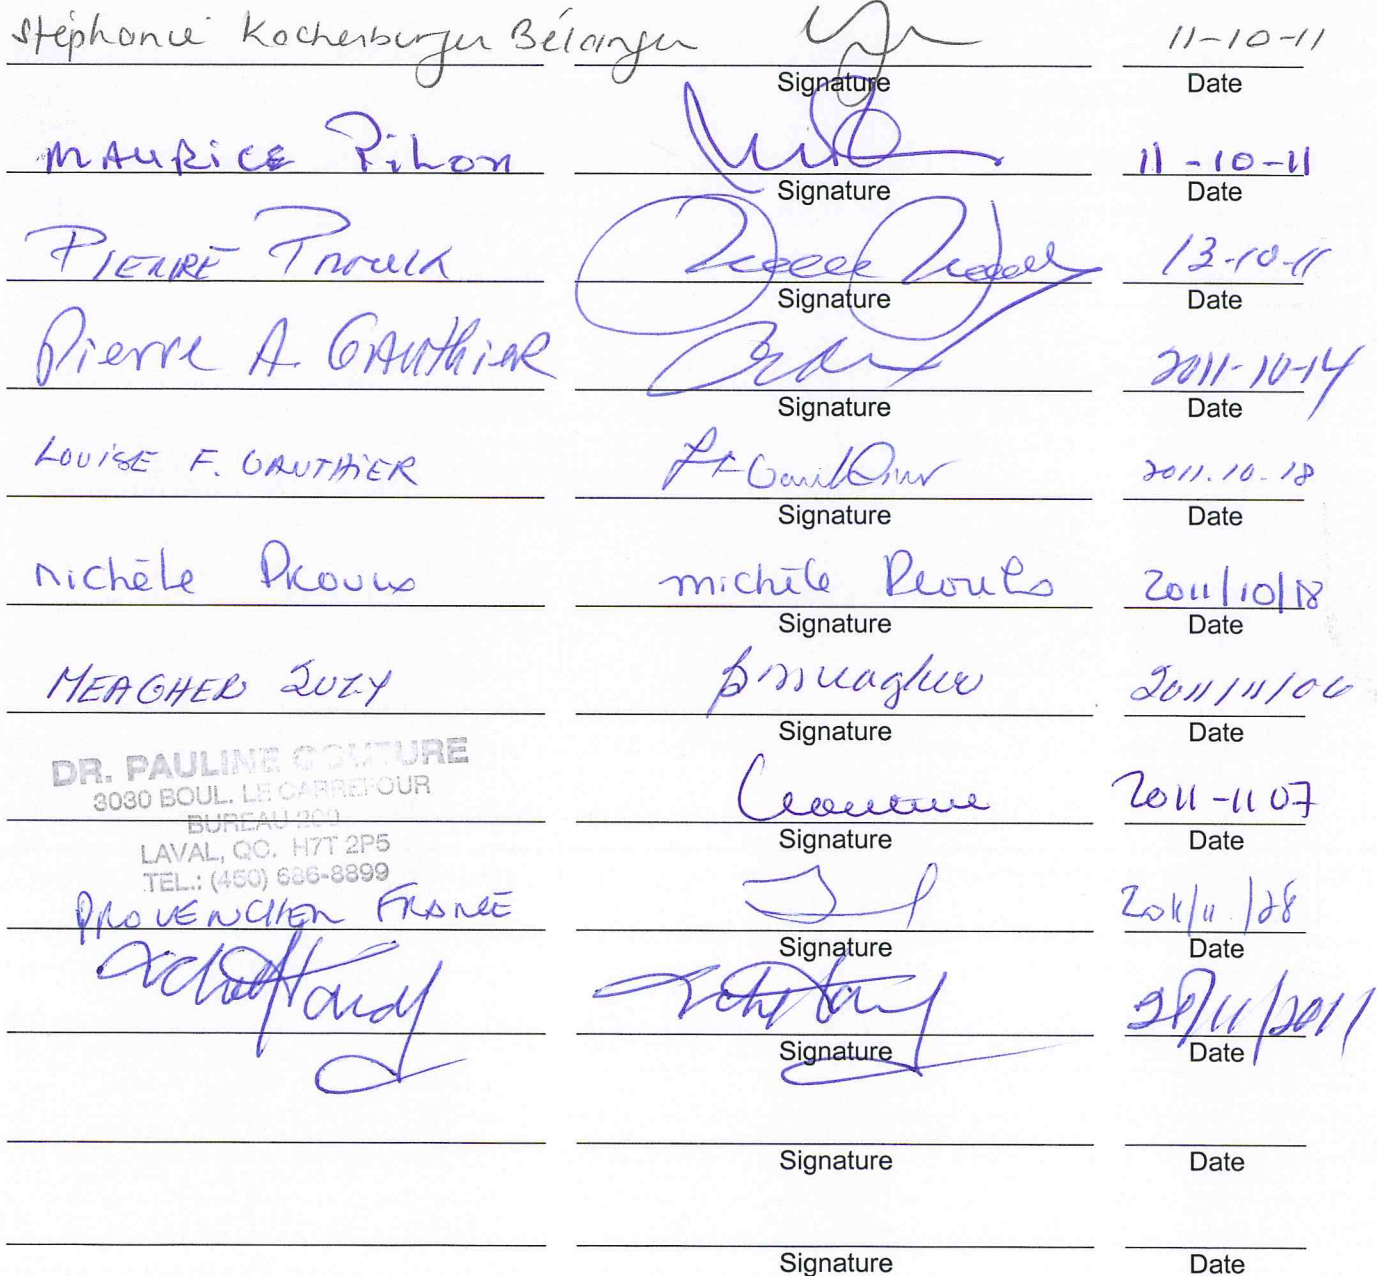 Stéphanie Kochenburger Bélanger 11-10-11
Signature Date
MAURICE Pilon 11-10-11
Signature Date
PIERRE Proulx 13-10-11
Signature Date
Pierre A. GAUTHIER 2011-10-14
Signature Date
LOUISE F. GAUTHIER LF Gauthier 2011.10.18
Signature Date
Michèle Proulx Michèle Proulx 2011/10/18
Signature Date
MEAGHER SUZY S Meagher 2011/11/06
Signature Date
DR. PAULINE COUTURE
3030 BOUL. LE CARREFOUR
BUREAU 209
LAVAL, QC. H7T 2P5
TEL.: (450) 686-8899
2011-11 07
Signature Date
PROVENCHER FRANCE 2011/11/28
Signature Date
28/11/2011
Signature Date
Signature Date
Signature Date